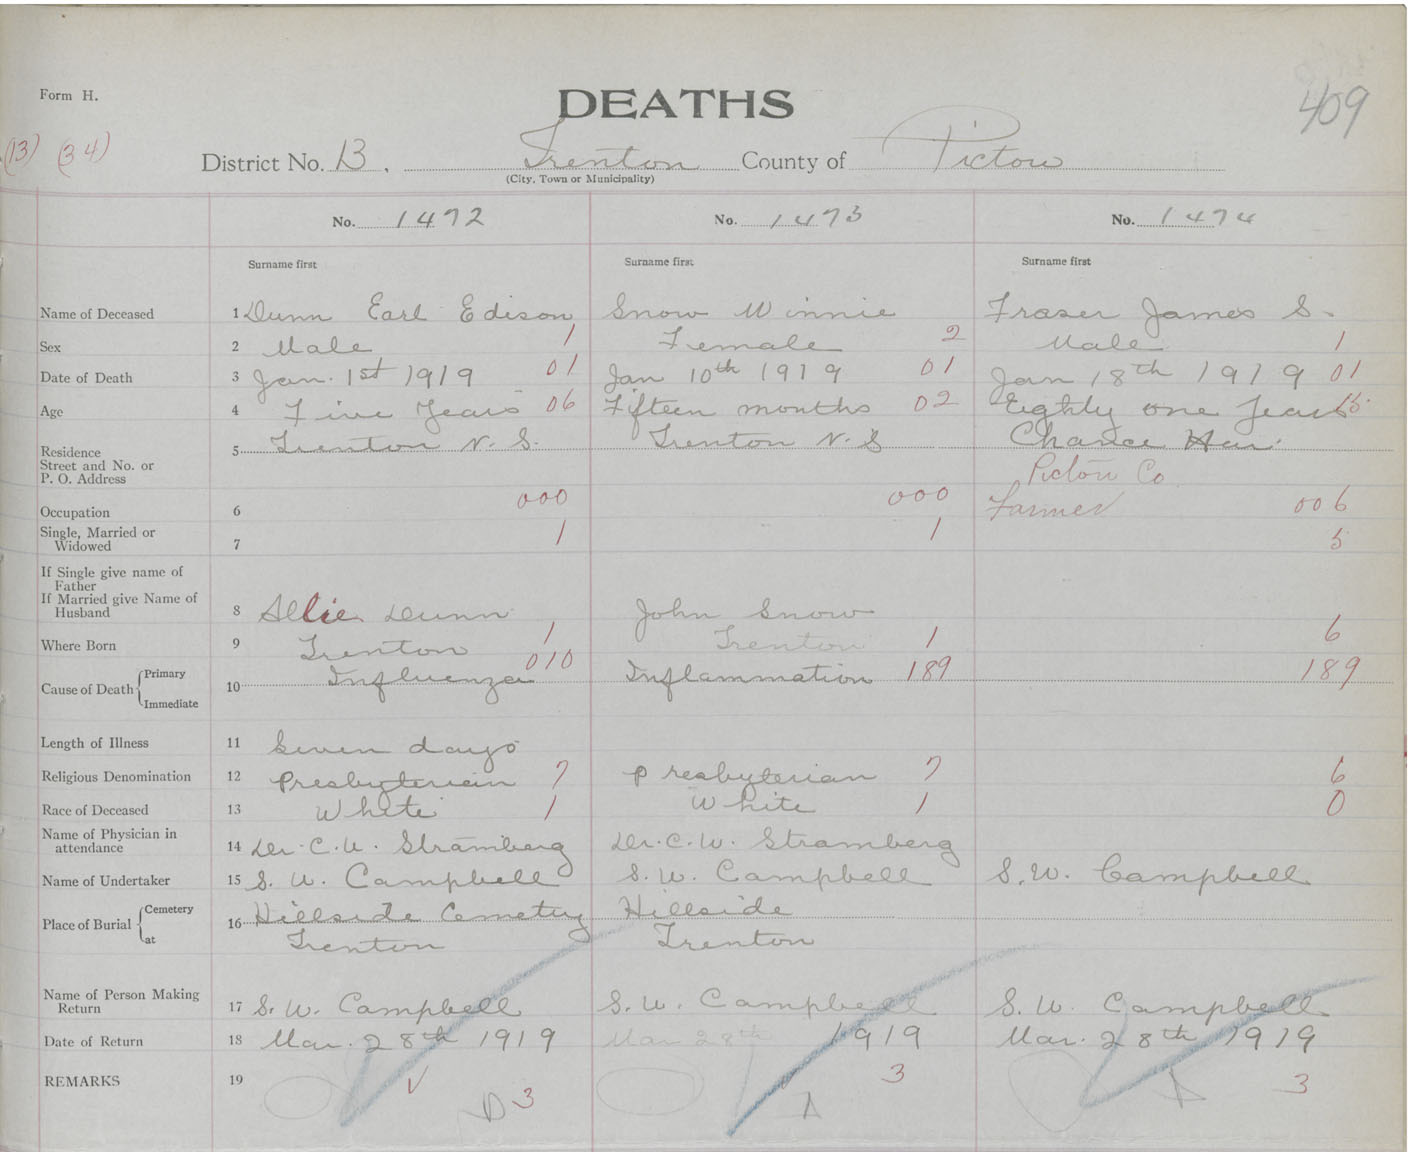 Form H.
DEATHS
409
(13) (34)
District No. 13, Trenton County of Pictou
(City, Town or Municipality)
No. 1472 No. 1473 No. 1474
Surname first Surname first Surname first
Name of Deceased 1 Dunn Earl Edison Snow Winnie Fraser James S.
Sex 2 Male 1 Female 2 Male 1
Date of Death 3 Jan. 1st 1919 01 Jan 10th 1919 01 Jan 18th 1919 01
Age 4 Five Years 06 Fifteen months 02 Eighty one Years
Residence
Street and No. or
P. O. Address
5 Trenton N. S. Trenton N. S Chance Har.
Pictou Co
Occupation 6 000 000 Farmer 006
Single, Married or
Widowed
7 1 1 5
If Single give name of
Father
If Married give Name of
Husband
8 Allie Dunn John Snow
Where Born 9 Trenton 1 Trenton 1 6
Cause of Death Primary
Immediate
10 Influenza 010 Inflammation 189 189
Length of Illness 11 Seven days
Religious Denomination 12 Presbyterian 7 Presbyterian 7 6
Race of Deceased 13 White 1 White 1 0
Name of Physician in
attendance
14 Dr. C. W. Stramberg Dr. C. W. Stramberg
Name of Undertaker 15 S. W. Campbell S. W. Campbell S. W. Campbell
Place of Burial Cemetery
at
16 Hillside Cemetery Hillside
Trenton Trenton
Name of Person Making
Return
17 S. W. Campbell S. W. Campbell S. W. Campbell
Date of Return 18 Mar. 28th 1919 Mar 28th 1919 Mar. 28th 1919
REMARKS 19 3 3 3